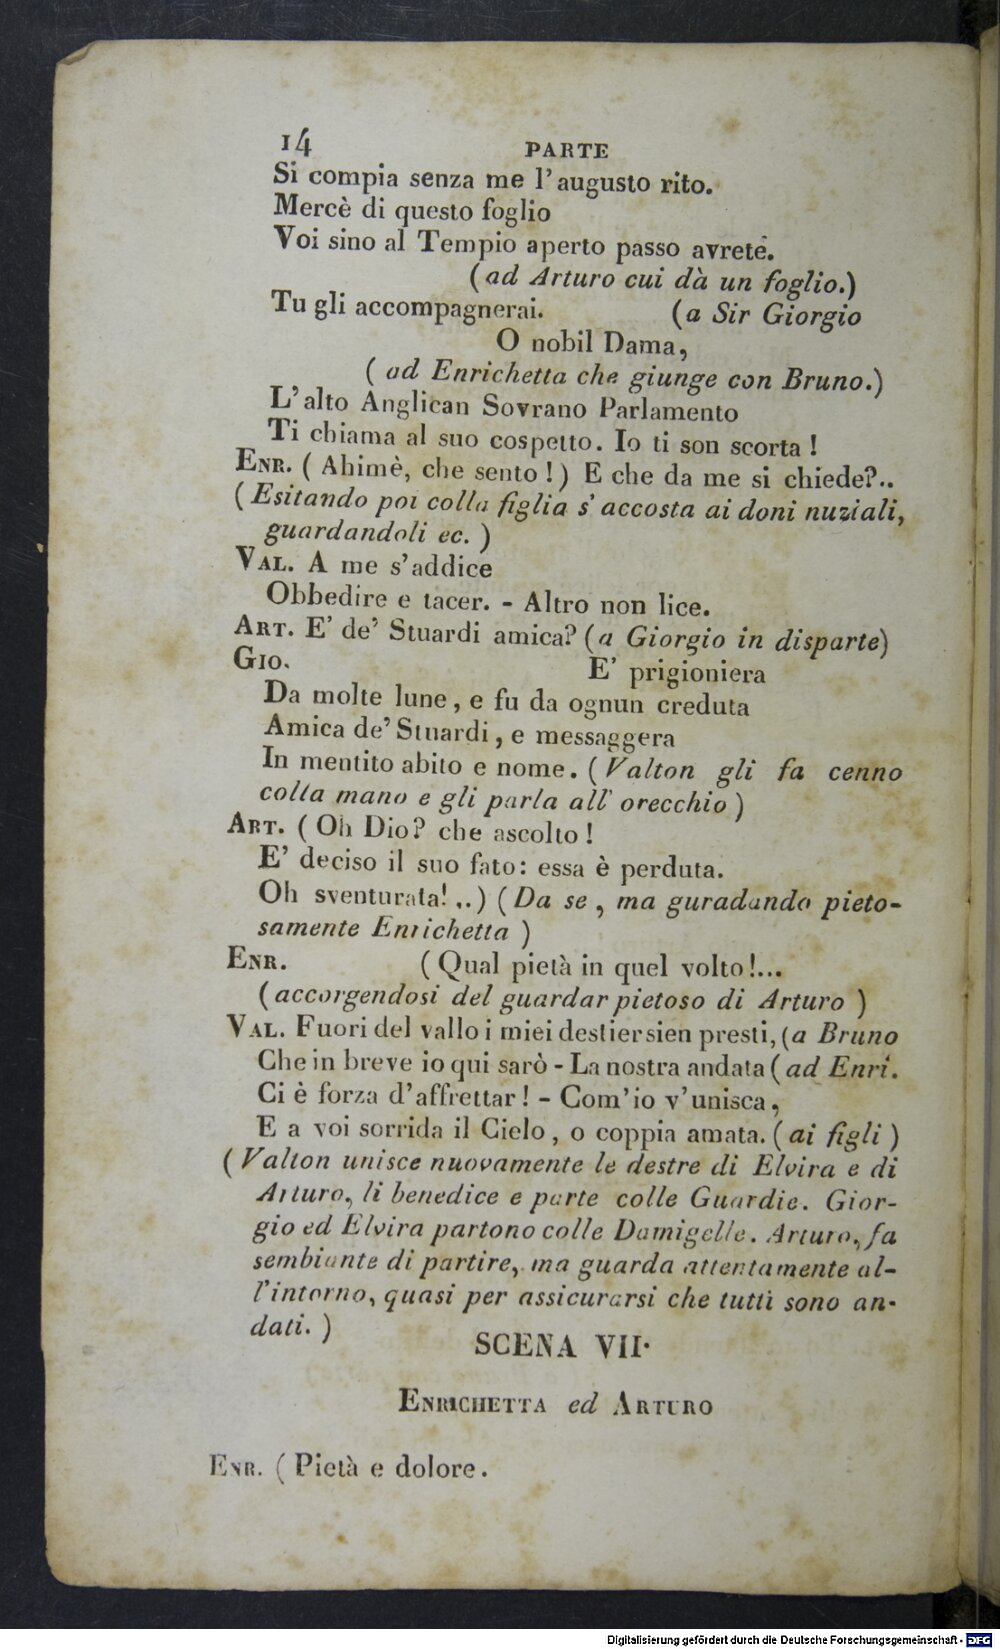 14 PARTE
Si compia senza me l'augusto rito.
Mercè di questo foglio
Voi sino al Tempio aperto passo avrete.
(ad Arturo cui dà un foglio.)
Tu gli accompagnerai. (a Sir Giorgio
O nobil Dama,
( ad Enrichetta che giunge con Bruno.)
L'alto Anglican Sovrano Parlamento
Ti chiama al suo cospetto. Io ti son scorta !
ENR. ( Ahimè, che sento ! ) E che da me si chiede?..
( Esitando poi colla figlia s' accosta ai doni nuziali,
guardandoli ec. )
VAL. A me s'addice
Obbedire e tacer. - Altro non lice.
ART. E' de' Stuardi amica? (a Giorgio in disparte)
GIO. E' prigioniera
Da molte lune, e fu da ognun creduta
Amica de' Stuardi, e messaggera
In mentito abito e nome. ( Valton gli fa cenno
colla mano e gli parla all' orecchio )
ART. ( Oh Dio? che ascolto !
E' deciso il suo fato: essa è perduta.
Oh sventurata!..) ( Da se, ma guradando pieto-
samente Enrichetta )
ENR. ( Qual pietà in quel volto!...
( accorgendosi del guardar pietoso di Arturo )
VAL. Fuori del vallo i miei destier sien presti, (a Bruno
Che in breve io qui sarò - La nostra andata ( ad Enri.
Ci è forza d'affrettar ! - Com'io v'unisca,
E a voi sorrida il Cielo, o coppia amata. ( ai figli )
( Valton unisce nuovamente le destre di Elvira e di
Arturo, li benedice e parte colle Guardie. Gior-
gio ed Elvira partono colle Damigelle. Arturo, fa
sembiante di partire, ma guarda attentamente al-
l'intorno, quasi per assicurarsi che tutti sono an-
dati. )
SCENA VII.
ENRICHETTA ed ARTURO
ENR. ( Pietà e dolore.
Digitalisierung gefördert durch die Deutsche Forschungsgemeinschaft - DFG